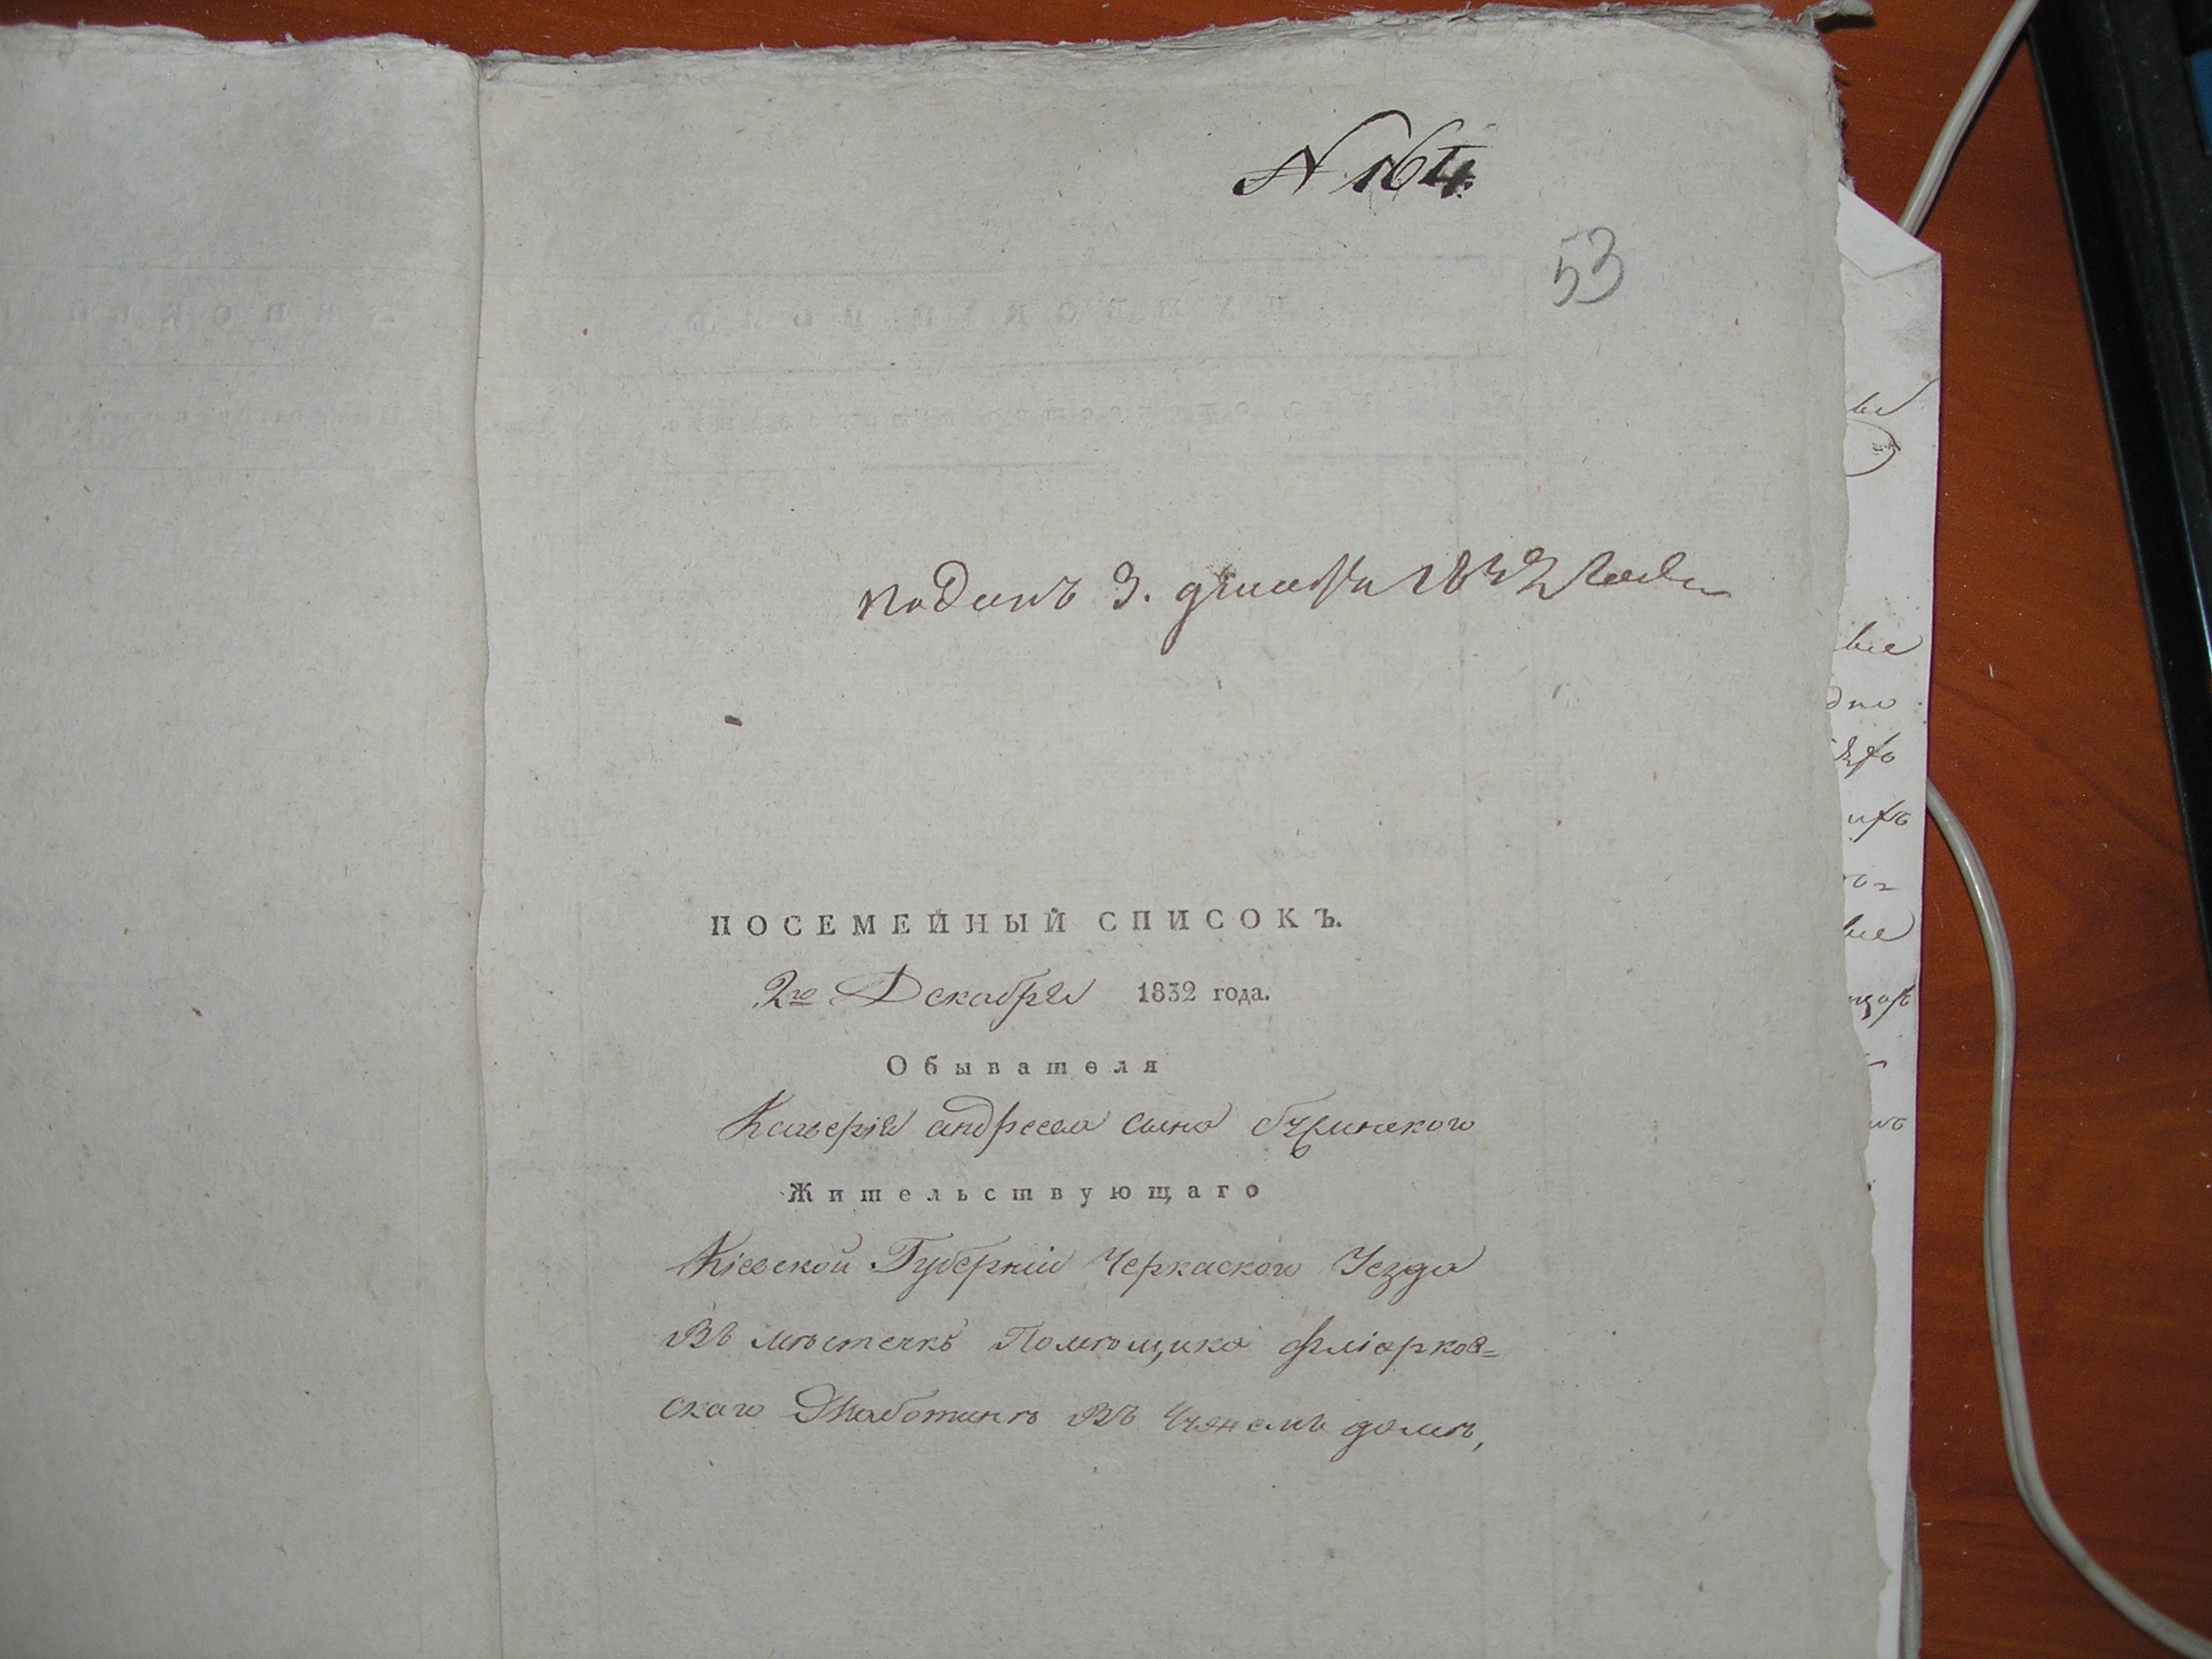 N 164.
53
поданъ 3. декабря 1832 года
ПОСЕМЕЙНЫЙ СПИСОКЪ.
2го Декабря 1832 года.
Обывателя
Каверія андреева сына
Жительствующаго
Кіевской Губерніи Черкаского Уезда
Въ мѣстечкѣ Помѣщика Фліорков=
скаго Жаботинѣ Въ домѣ,